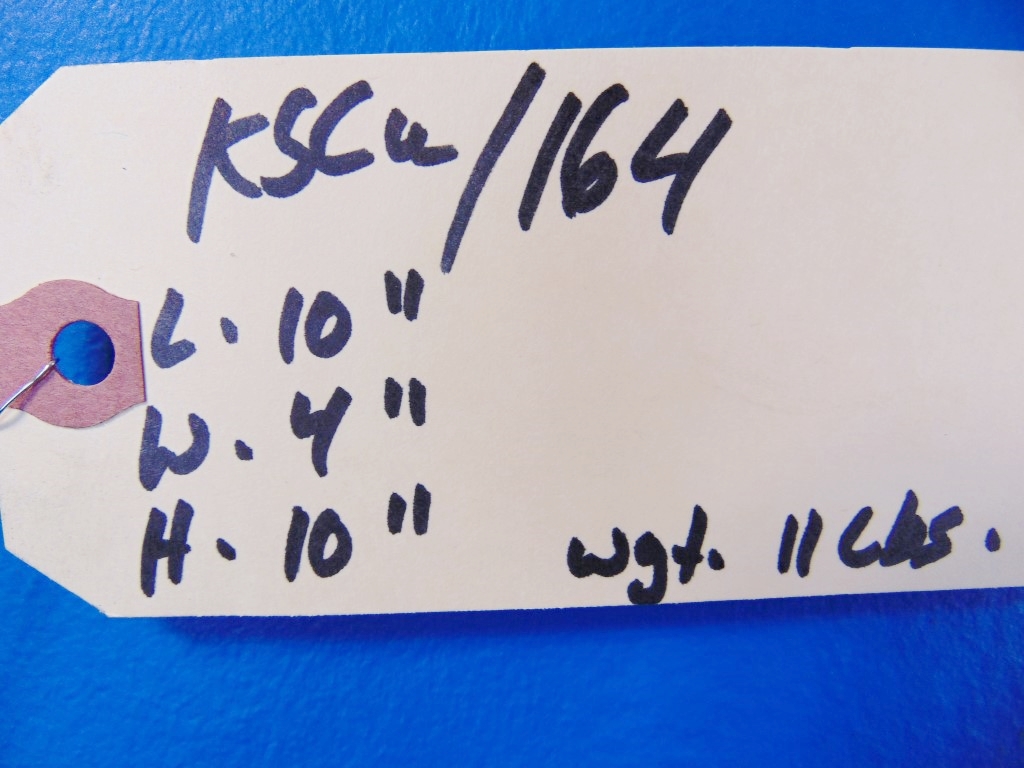 KSCu/164
L. 10"
W. 4"
H. 10" wgt. 11 Lbs.